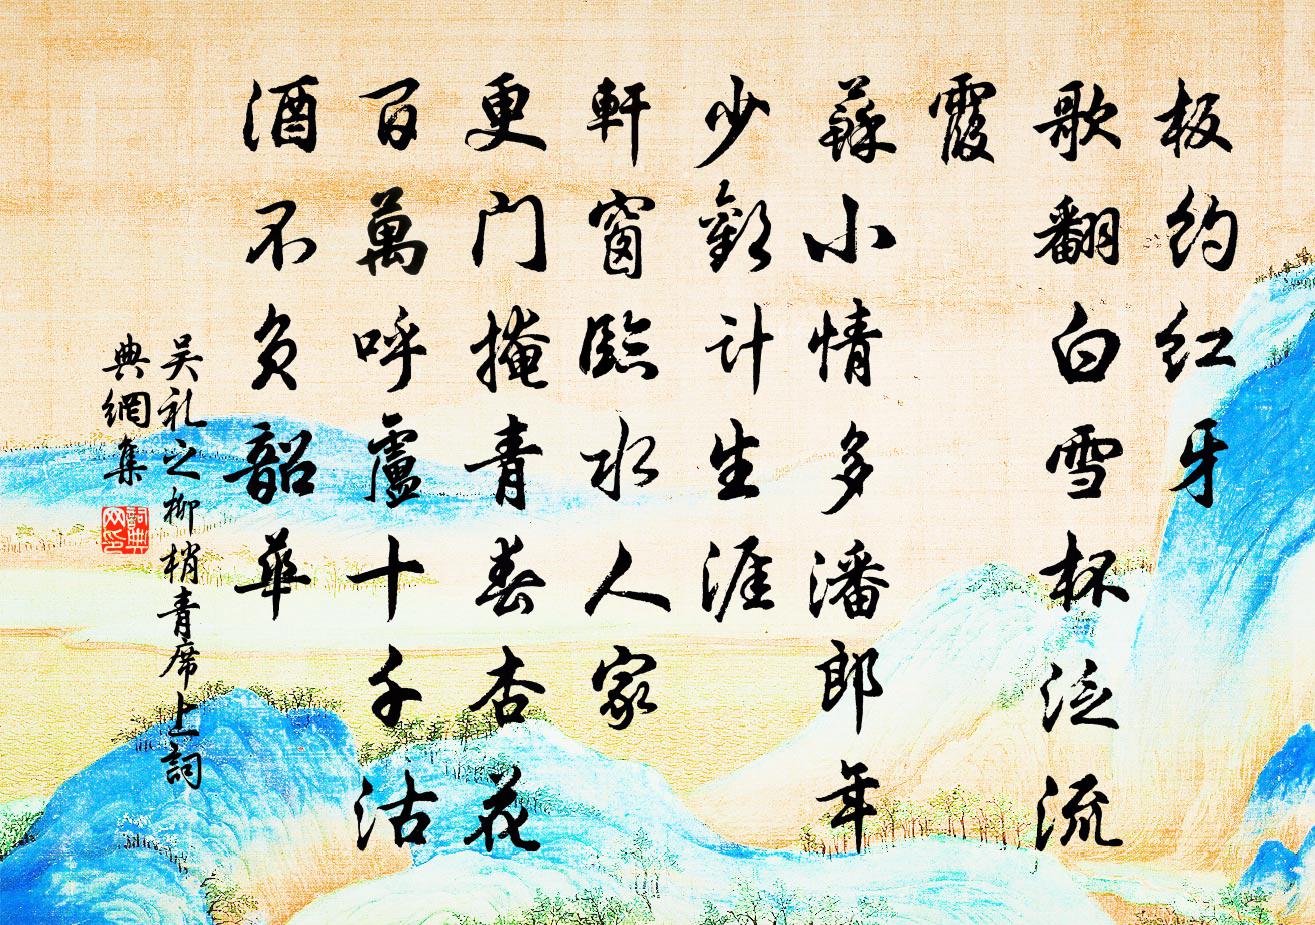 板约红牙
歌翻白雪杯泛流
霞
蘇小情多潘郎年
少歡计生涯
軒窗臨水人家
更门掩青春杏花
百萬呼盧十千沽
酒不负韶華
吴礼之柳梢青席上詞
典網集
詞典网印